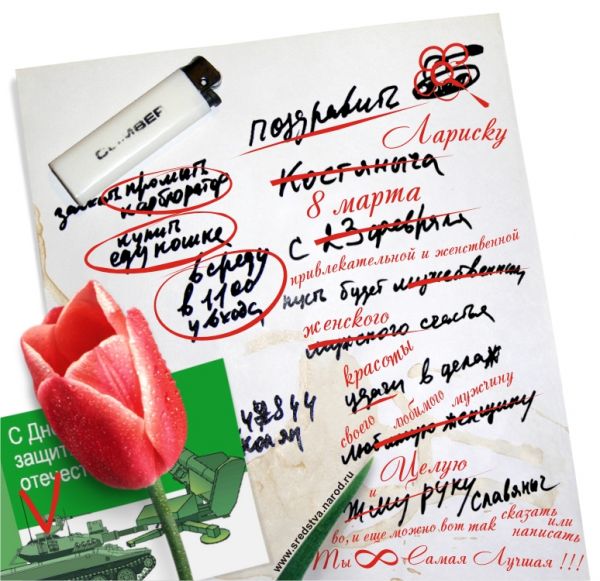 CLIMBER
поздравить
Лариску
Костяныча
8 марта
с 23 февраля
привлекательной и женственной
пусть будет мужественным
женского
мужского счастья
красоты
удачи в делах
своего любимого мужчину
любимую женщину
Целую
и
жму руку / славяныч
во, и еще можно вот так сказать
или
написать
Ты ∞ Самая Лучшая !!!
промыть
карбюратор
купить
еду кошке
в среду
в 11 00
у входа
С Дн
защит
отечест
www.sredstva.narod.ru